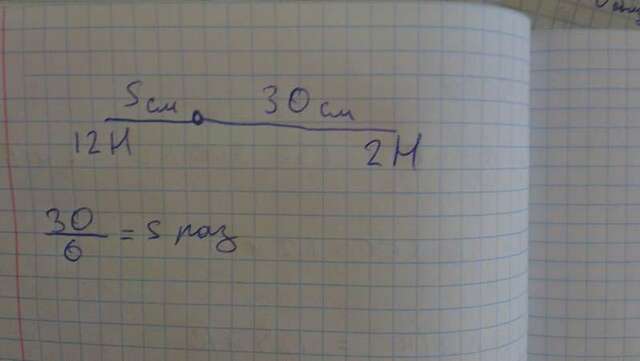 5см 30см
12Н 2Н
30/6 = 5 раз